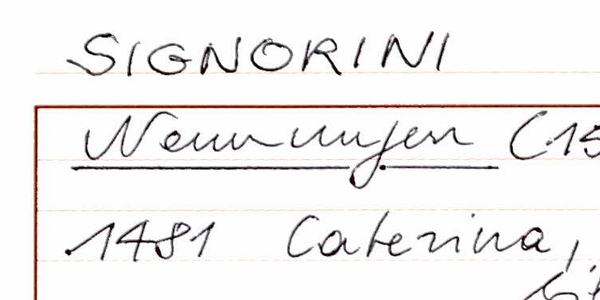 SIGNORINI
Nennungen (15
1481 Caterina,